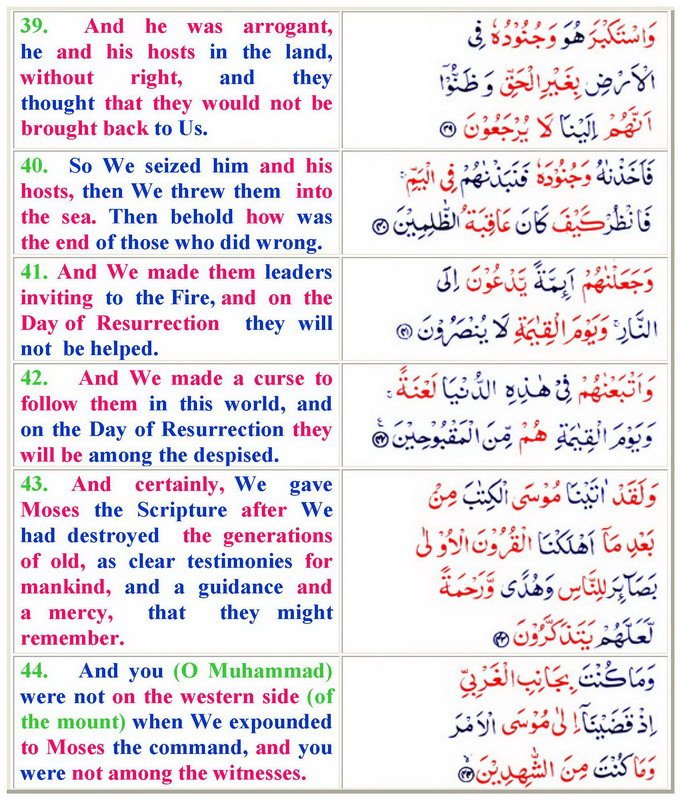 39. And he was arrogant,
he and his hosts in the land,
without right, and they
thought that they would not be
brought back to Us.
وَاسْتَكْبَرَ هُوَ وَجُنُوْدُهٗ فِى
الْاَرْضِ بِغَيْرِ الْحَقِّ وَظَنُّوْٓا
اَنَّهُمْ اِلَيْنَا لَا يُرْجَعُوْنَ ﴿۳۹﴾
40. So We seized him and his
hosts, then We threw them into
the sea. Then behold how was
the end of those who did wrong.
فَاَخَذْنٰهُ وَجُنُوْدَهٗ فَنَبَذْنٰهُمْ فِى الْيَمِّ ۚ
فَانْظُرْ كَيْفَ كَانَ عَاقِبَةُ الظّٰلِمِيْنَ ﴿۴۰﴾
41. And We made them leaders
inviting to the Fire, and on the
Day of Resurrection they will
not be helped.
وَجَعَلْنٰهُمْ اَىِٕمَّةً يَّدْعُوْنَ اِلَى
النَّارِ ۚ وَيَوْمَ الْقِيٰمَةِ لَا يُنْصَرُوْنَ ﴿۴۱﴾
42. And We made a curse to
follow them in this world, and
on the Day of Resurrection they
will be among the despised.
وَاَتْبَعْنٰهُمْ فِىْ هٰذِهِ الدُّنْيَا لَعْنَةً ۚ
وَيَوْمَ الْقِيٰمَةِ هُمْ مِّنَ الْمَقْبُوْحِيْنَ ﴿۴۲﴾
43. And certainly, We gave
Moses the Scripture after We
had destroyed the generations
of old, as clear testimonies for
mankind, and a guidance and
a mercy, that they might
remember.
وَلَقَدْ اٰتَيْنَا مُوْسَى الْكِتٰبَ مِنْۢ
بَعْدِ مَآ اَهْلَكْنَا الْقُرُوْنَ الْاُوْلٰى
بَصَآئِرَ لِلنَّاسِ وَهُدًى وَّرَحْمَةً
لَّعَلَّهُمْ يَتَذَكَّرُوْنَ ﴿۴۳﴾
44. And you (O Muhammad)
were not on the western side (of
the mount) when We expounded
to Moses the command, and you
were not among the witnesses.
وَمَا كُنْتَ بِجَانِبِ الْغَرْبِىِّ
اِذْ قَضَيْنَآ اِلٰى مُوْسَى الْاَمْرَ
وَمَا كُنْتَ مِنَ الشّٰهِدِيْنَ ﴿۴۴﴾